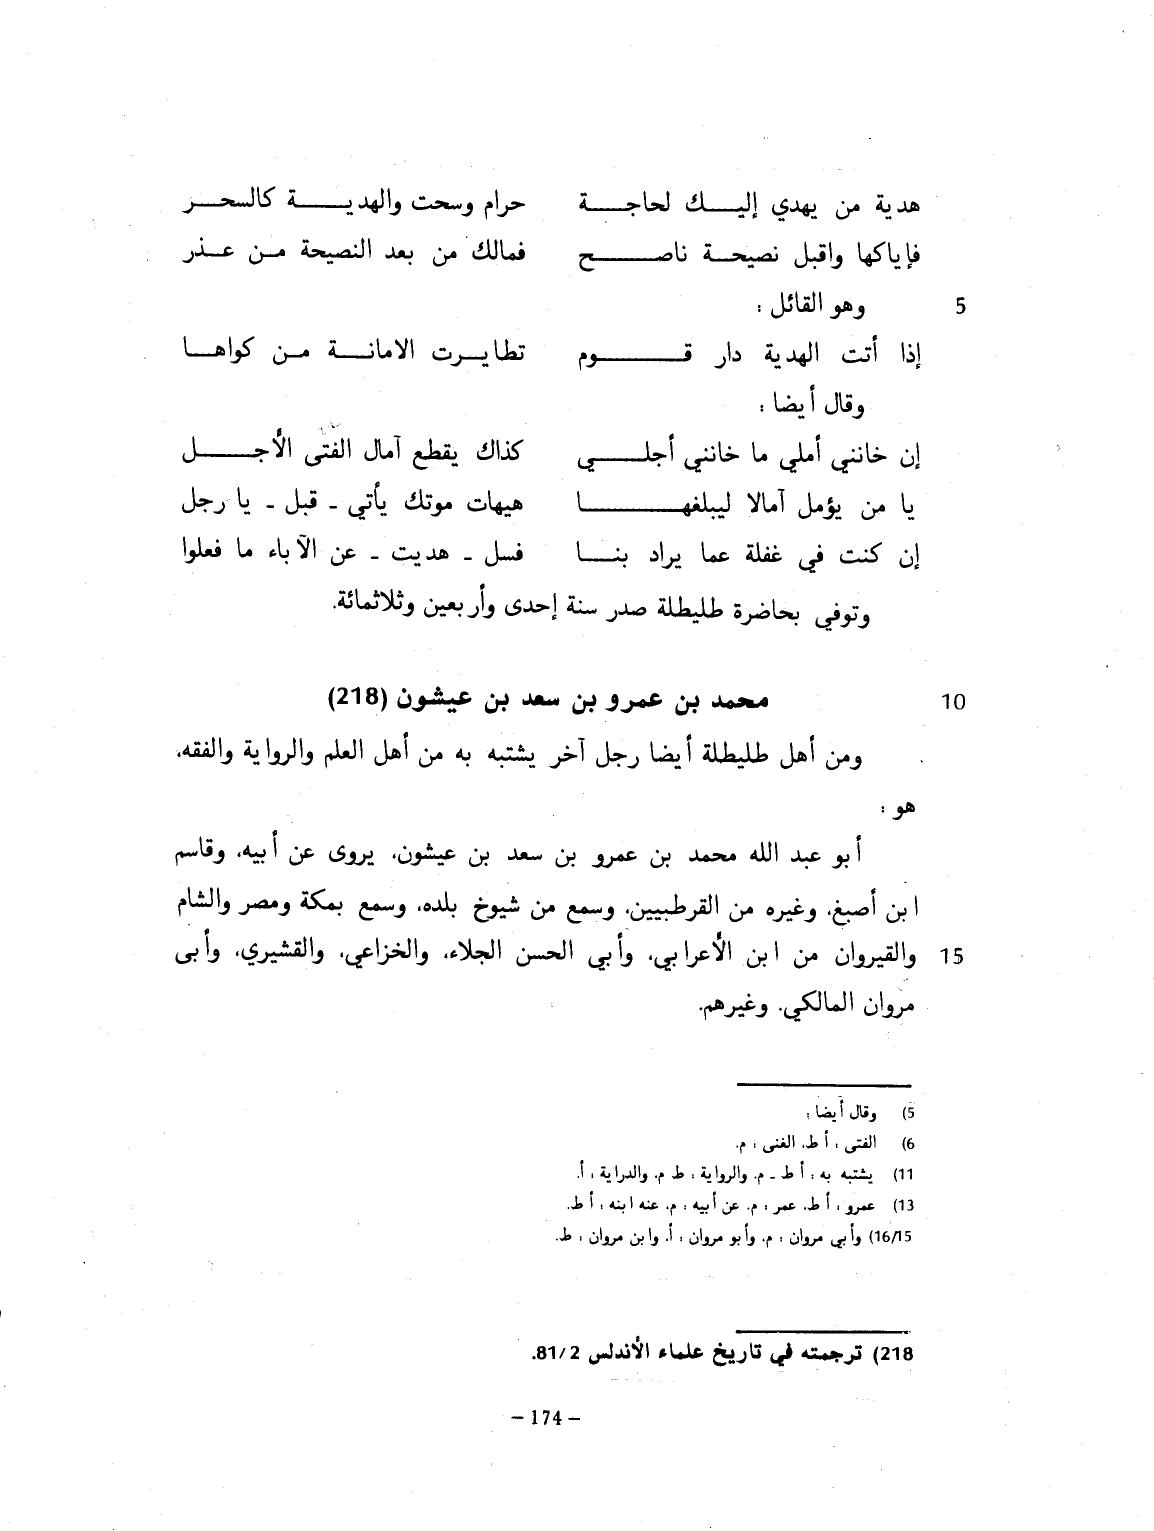 هدية من يهدي إليك لحاجة حرام وسحت والهدية كالسحر
فإياكها واقبل نصيحة ناصح فمالك من بعد النصيحة من عذر
5 وهو القائل :
إذا أتت الهدية دار قوم تطايرت الامانة من كواها
وقال أيضا :
إن خانني أملي ما خانني أجلي كذاك يقطع آمال الفتى الأجل
يا من يؤمل آمالا ليبلغها هيهات موتك يأتي ـ قبل ـ يا رجل
إن كنت في غفلة عما يراد بنا فسل ـ هديت ـ عن الآباء ما فعلوا
وتوفي بحاضرة طليطلة صدر سنة إحدى وأربعين وثلاثمائة.
10 محمد بن عمرو بن سعد بن عيشون (218)
ومن أهل طليطلة أيضا رجل آخر يشتبه به من أهل العلم والرواية والفقه،
هو :
أبو عبد الله محمد بن عمرو بن سعد بن عيشون، يروى عن أبيه، وقاسم
ابن أصبغ، وغيره من القرطبيين، وسمع من شيوخ بلده، وسمع بمكة ومصر والشام
15 والقيروان من ابن الأعرابي، وأبي الحسن الجلاء، والخزاعي، والقشيري، وأبى
مروان المالكي. وغيرهم.
5) وقال أيضا :
6) الفتى : أ ط. الفنى : م.
11) يشتبه به : أ ط ـ م. والرواية : ط م. والدراية : أ.
13) عمرو : أ ط. عمر : م. عن أبيه : م. عنه ابنه : أ ط.
16/15) وأبي مروان : م. وأبو مروان : أ. وابن مروان : ط.
218) ترجمته في تاريخ علماء الأندلس 2/81.
– 174 –